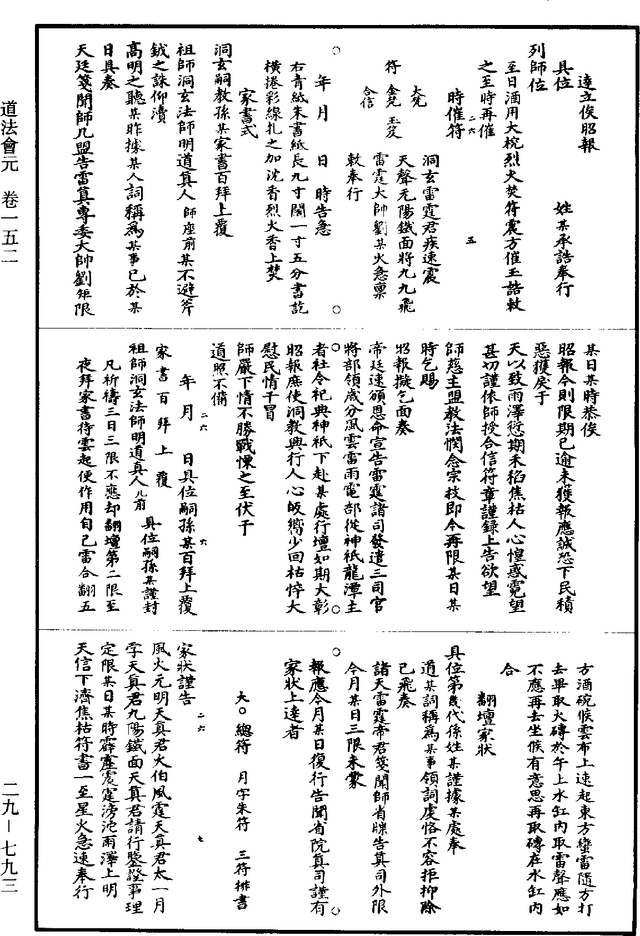 道法會元　卷一五二
達立俟昭報
具位　姓某承誥奉行
列師位
至日酒用大椀烈火焚符震方催玉誥敕
之至時再催
時催符
大梵　洞玄雷霆君疾速震
符　金光　玉文　天聲元陽鐵面將九九飛
合信　雷霆大帥劉某火急稟
敕奉行
年　月　日　時告急
右青紙朱書紙長九寸闊一寸五分書訖
橫捲彩線扎之加沈香烈火香上焚
家書式
洞玄嗣教孫某家書百拜上覆
祖師洞玄法師明道真人師座前某不避斧
鉞之誅仰瀆
高明之聽某昨據某人詞稱為某事已於某
日具奏
天廷箋聞師几盟告雷真專委大帥劉矩限
某日某時恭俟
昭報今則限期已逾未獲報應誠恐下民積
惡獲戾于
天以致雨澤愆期禾稻焦枯人心惶惑霓望
甚切謹依師授合信符章謹錄上告欲望
師慈主盟教法憫念宗枝即今再限某日某
時乞賜
昭報擬乞面奏
帝廷速頒恩命宣告雷霆諸司發遣三司官
將部領歲分風雲雷雨電部從神祇龍潭主
者社令祀典神祇下赴某處行壇如期大彰
昭報庶使洞教興行人心皈嚮少回枯悴大
慰民情干冒
師嚴下情不勝戰慄之至伏干
道照不備
年　月　日具位嗣孫某百拜上覆
家書百拜上覆
祖師洞玄法師明道真人几前　具位嗣孫某謹封
凡祈禱三日三限不應却翻壇第二限至
夜拜家書待雲起便作用自己雷合翻五
方酒碗候雲布上速起東方蠻雷隨方打
去畢取火磚於午上水缸內取雷聲應如
不應再去坐候有意思再取磚在水缸內
合
翻壇家狀
具位第幾代孫姓某謹據某處奉
道某詞稱為某事領詞虔恪不容拒抑除
已飛奏
諸天雷霆帝君箋聞師省牒告真司外限
今月某日三限未蒙
報應今月某日復行告聞省院真司謹有
家狀上達者
大○總符　月字朱符　三符排書
家狀謹告
風火元明天真君火伯風霆天真君太一月
孛天真君九陽鐵面天真君請行鑒證事理
定限某日某時霹靂震霆滂沱雨澤上明
天信下濟焦枯符書一至星火急速奉行
二九－七九三